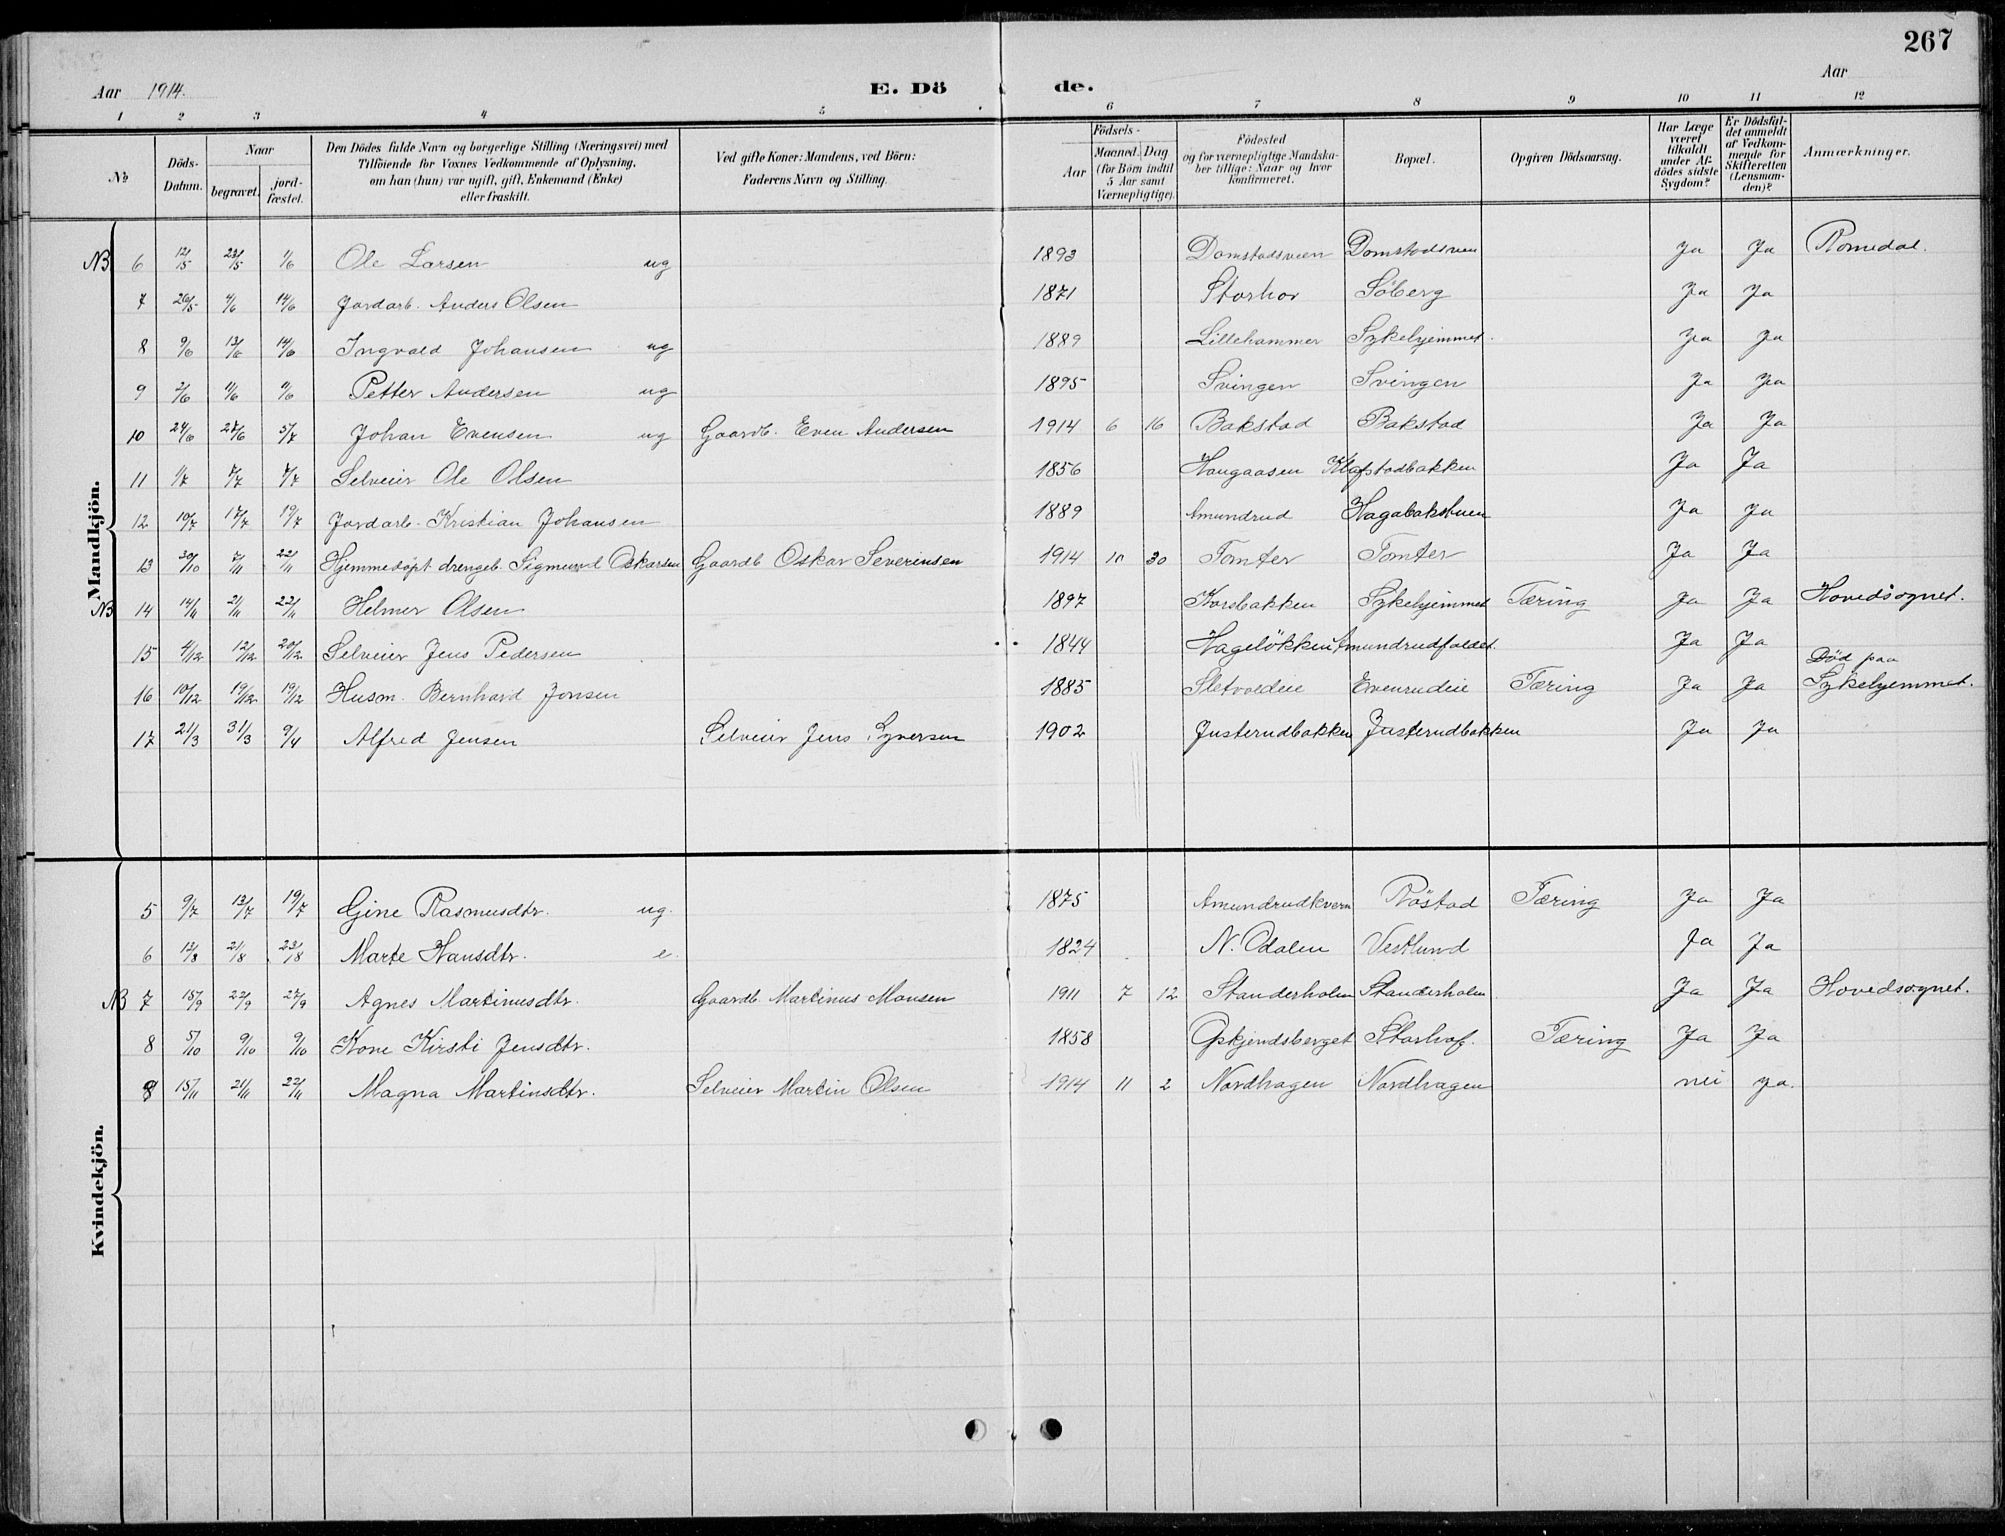 267
Aar 1914.
E. Dö de.
Aar
1 2 3 4 5 6 7 8 9 10 11 12
№
Döds-Datum.
Naar
begravet.
jord-fæstet.
Den Dödes fulde Navn og borgerlige Stilling (Næringsvei) med
Tilföiende for Voxnes Vedkommende af Oplysning,
om han (hun) var ugift, gift, Enkemand (Enke)
eller fraskilt.
Ved gifte Koner: Mandens, ved Börn:
Faderens Navn og Stilling.
Födsels-
Aar
Maaned. Dag
(for Börn indtil
5 Aar samt
Værnepligtige).
Födested
og for værnepligtige Mandska-
ber tillige: Naar og hvor
Konfirmeret.
Bopæl.
Opgiven Dödsaarsag.
Har Læge
været
tilkaldt
under Af-
dödes sidste
Sygdom?
Er Dödsfal-
det anmeldt
af Vedkom-
mende for
Skifteretten
(Lensman-
den)?
Anmærkninger.
Mandkjön.
NB 6 12/5 23/5 1/6 Ole Larsen ug 1893 Domstadsveen Domstadsveen Ja Ja Romedal.
7 26/5 4/6 14/6 Jordarb. Anders Olsen 1871 Storhov Söberg Ja Ja
8 9/6 13/6 14/6 Ingvald Johansen ug 1889 Lillehammer Sykehjemmet. Ja Ja
9 2/6 9/6 Petter Andersen ug 1895 Svingen Svingen Ja Ja
10 24/6 27/6 5/7 Johan Evensen ug Gaardb. Even Andersen 1914 6 16 Bakstad Bakstad Ja Ja
11 1/7 7/7 7/7 Selveier Ole Olsen 1856 Haugaasen Klafstadbakken Ja Ja
12 10/7 17/7 19/7 Jordarb. Kristian Johansen 1889 Amundrud Hagabakstuen Ja Ja
13 30/10 7/11 22/11 Hjemmedöpt drengeb. Sigmund Oskarsen Gaardb Oskar Severinsen 1914 10 30 Tomter Tomter Ja Ja
NB 14 14/11 21/11 22/11 Helmer Olsen 1897 Korsbakken Sykehjemmet Tæring Ja Ja Hovedsognet.
15 4/12 12/12 20/12 Selveier Jens Pedersen 1844 Hageløkken Amundrudfaldet. Ja Ja
16 10/12 19/12 19/12 Husm. Bernhard Jonsen 1885 Sletvoldeie Evenrudeie Tæring Ja Ja Död paa Sykehjemmet.
17 21/3 31/3 9/4 Alfred Jensen Selveier Jens Syversen 1902 Justerudbakken Justerudbakken Ja Ja
Kvindekjön.
5 9/7 13/7 19/7 Gine Rasmusdtr. ug. 1875 Amundrudkvern Röstad Tæring Ja Ja
6 13/8 21/8 23/8 Marte Hansdtr. e. 1824 N. Odalen Vestlund Ja Ja
NB 7 15/9 22/9 27/9 Agnes Martinusdtr. Gaardb. Martinus Monsen 1911 7 12 Standerholen Standerholen Ja Ja Hovedsognet.
8 5/10 9/10 9/10 Kone Kirsti Jensdtr. 1858 Opkjendsberget Storhof. Tæring Ja Ja
9 15/11 21/11 22/11 Magna Martinsdtr. Selveier Martin Olsen 1914 11 2 Nordhagen Nordhagen nei ja.